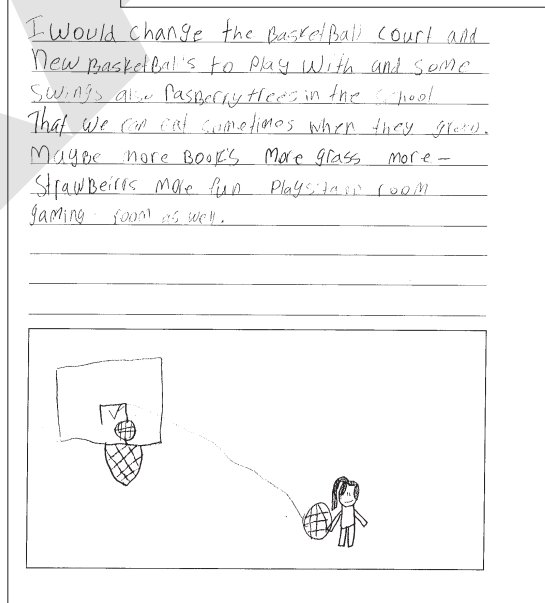 I would change the BasketBall court and
New BasketBal's to Play with and some
Swings also RasBerry trees in the school
That we can eat sometimes when they grow.
Maybe more Book's More grass more-
More fun room
gaming room as well.